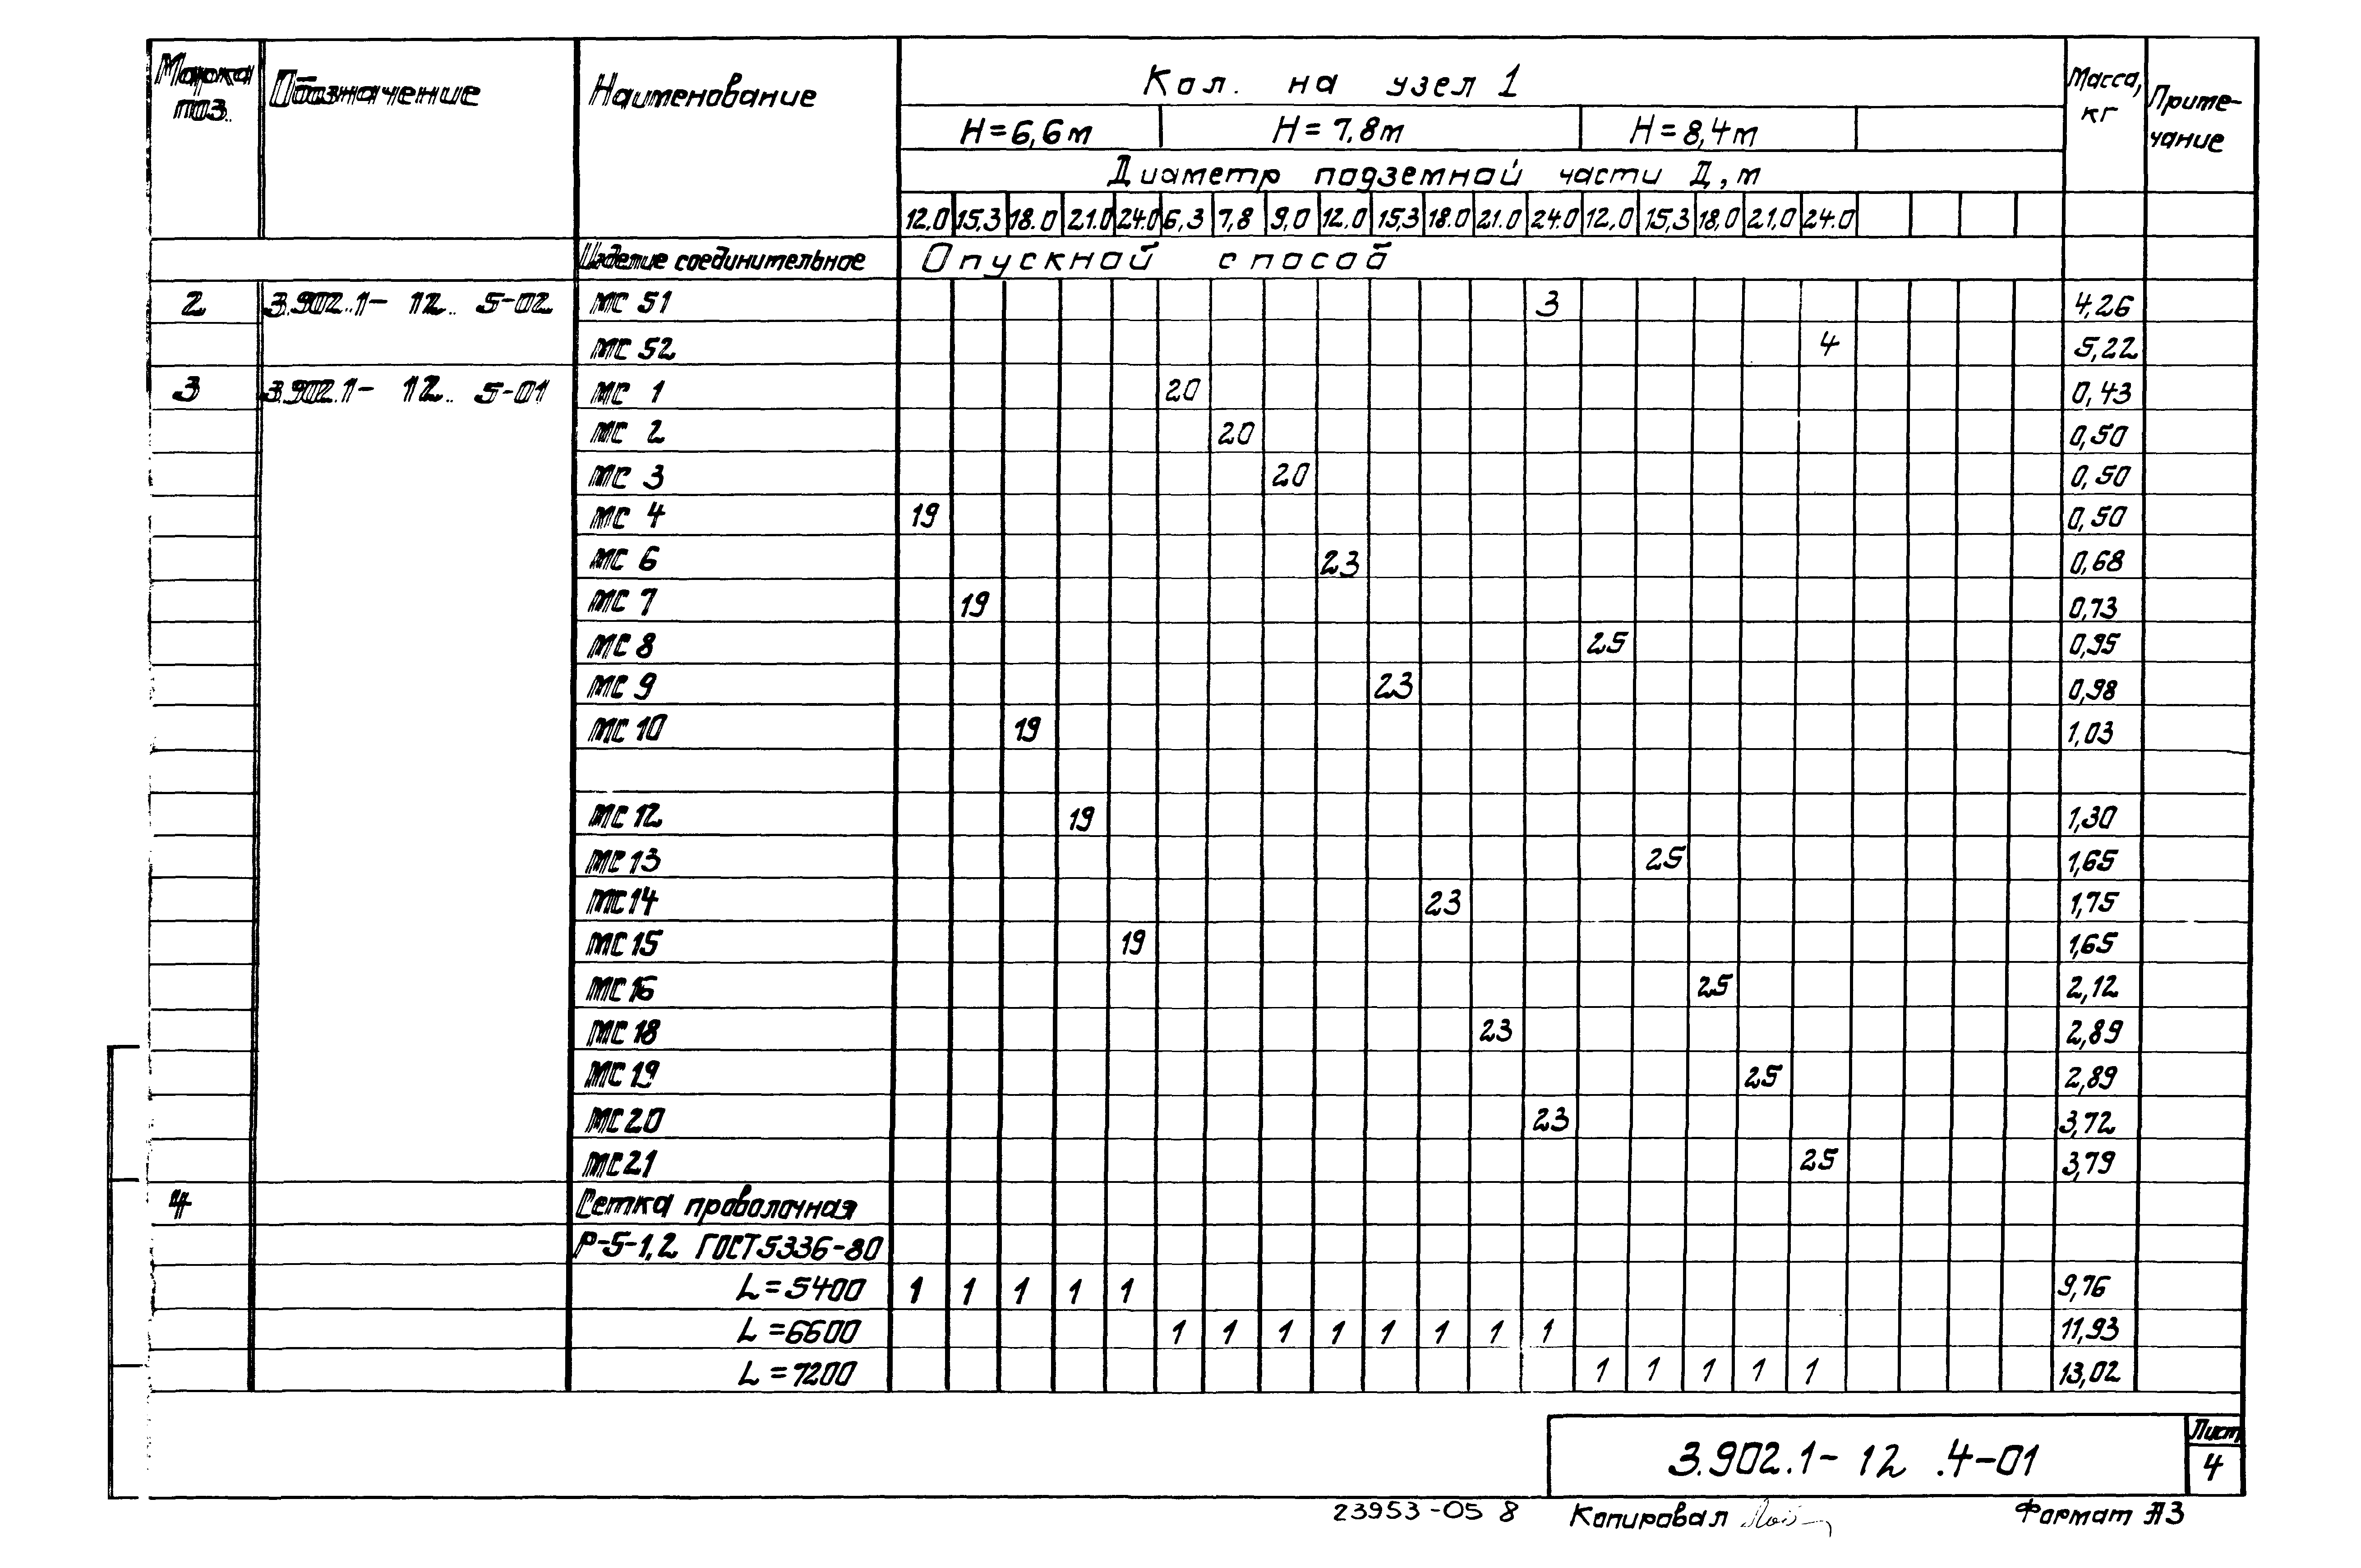 Марка Обозначение Наименование Кол. на узел 1 Масса, Приме-
поз. кг чание
H=6,6м H=7,8м H=8,4м
Диаметр подземной части Д, м
12.0 15,3 18.0 21.0 24.0 6,3 7,8 9,0 12.0 15,3 18.0 21.0 24.0 12,0 15,3 18,0 21,0 24.0
Изделие соединительное Опускной способ
2 3.902.1- 12. 5-02 МС 51 3 4,26
МС 52 4 5,22
3 3.902.1- 12. 5-01 МС 1 20 0,43
МС 2 20 0,50
МС 3 20 0,50
МС 4 19 0,50
МС 6 23 0,68
МС 7 19 0,73
МС 8 25 0,95
МС 9 23 0,98
МС 10 19 1,03
МС 12 19 1,30
МС 13 25 1,65
МС 14 23 1,75
МС 15 19 1,65
МС 16 25 2,12
МС 18 23 2,89
МС 19 25 2,89
МС 20 23 3,72
МС 21 25 3,79
4 Сетка проволочная
Р-5-1,2 ГОСТ 5336-80
L=5400 1 1 1 1 1 9,76
L=6600 1 1 1 1 1 1 1 1 11,93
L=7200 1 1 1 1 1 13,02
3.902.1- 12 .4-01 Лист
4
23953-05 8 Копировал Формат А3